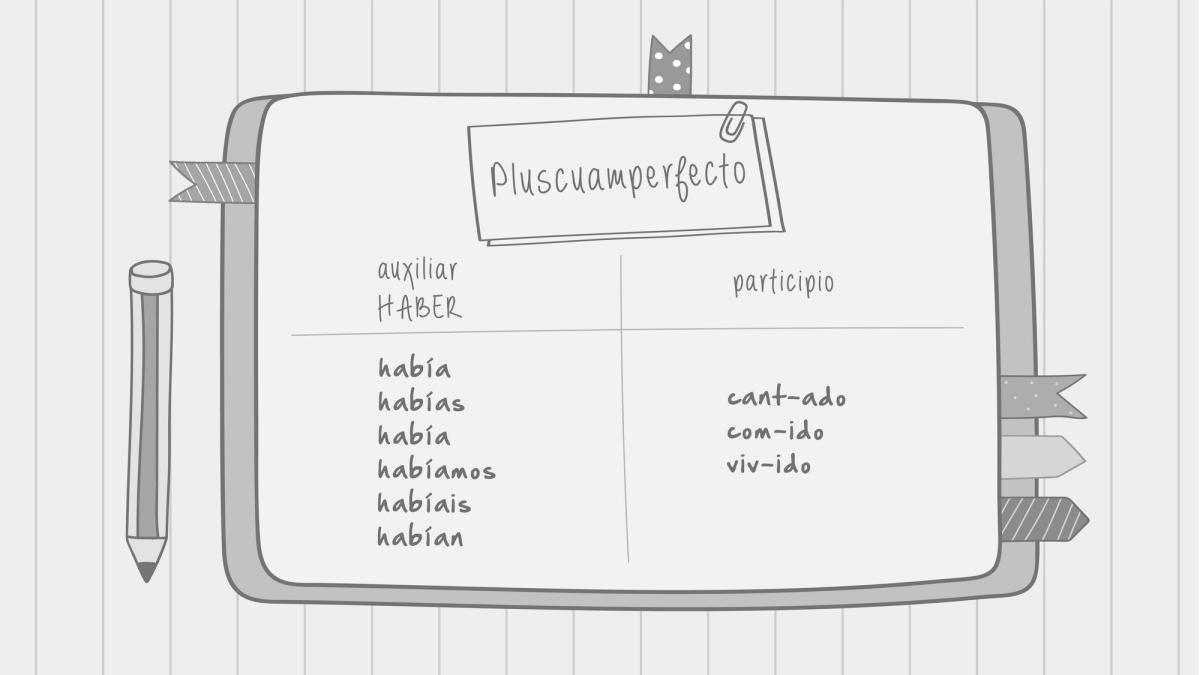 Pluscuamperfecto
auxiliar
HABER
participio
había
habías
había
habíamos
habíais
habían
cant-ado
com-ido
viv-ido